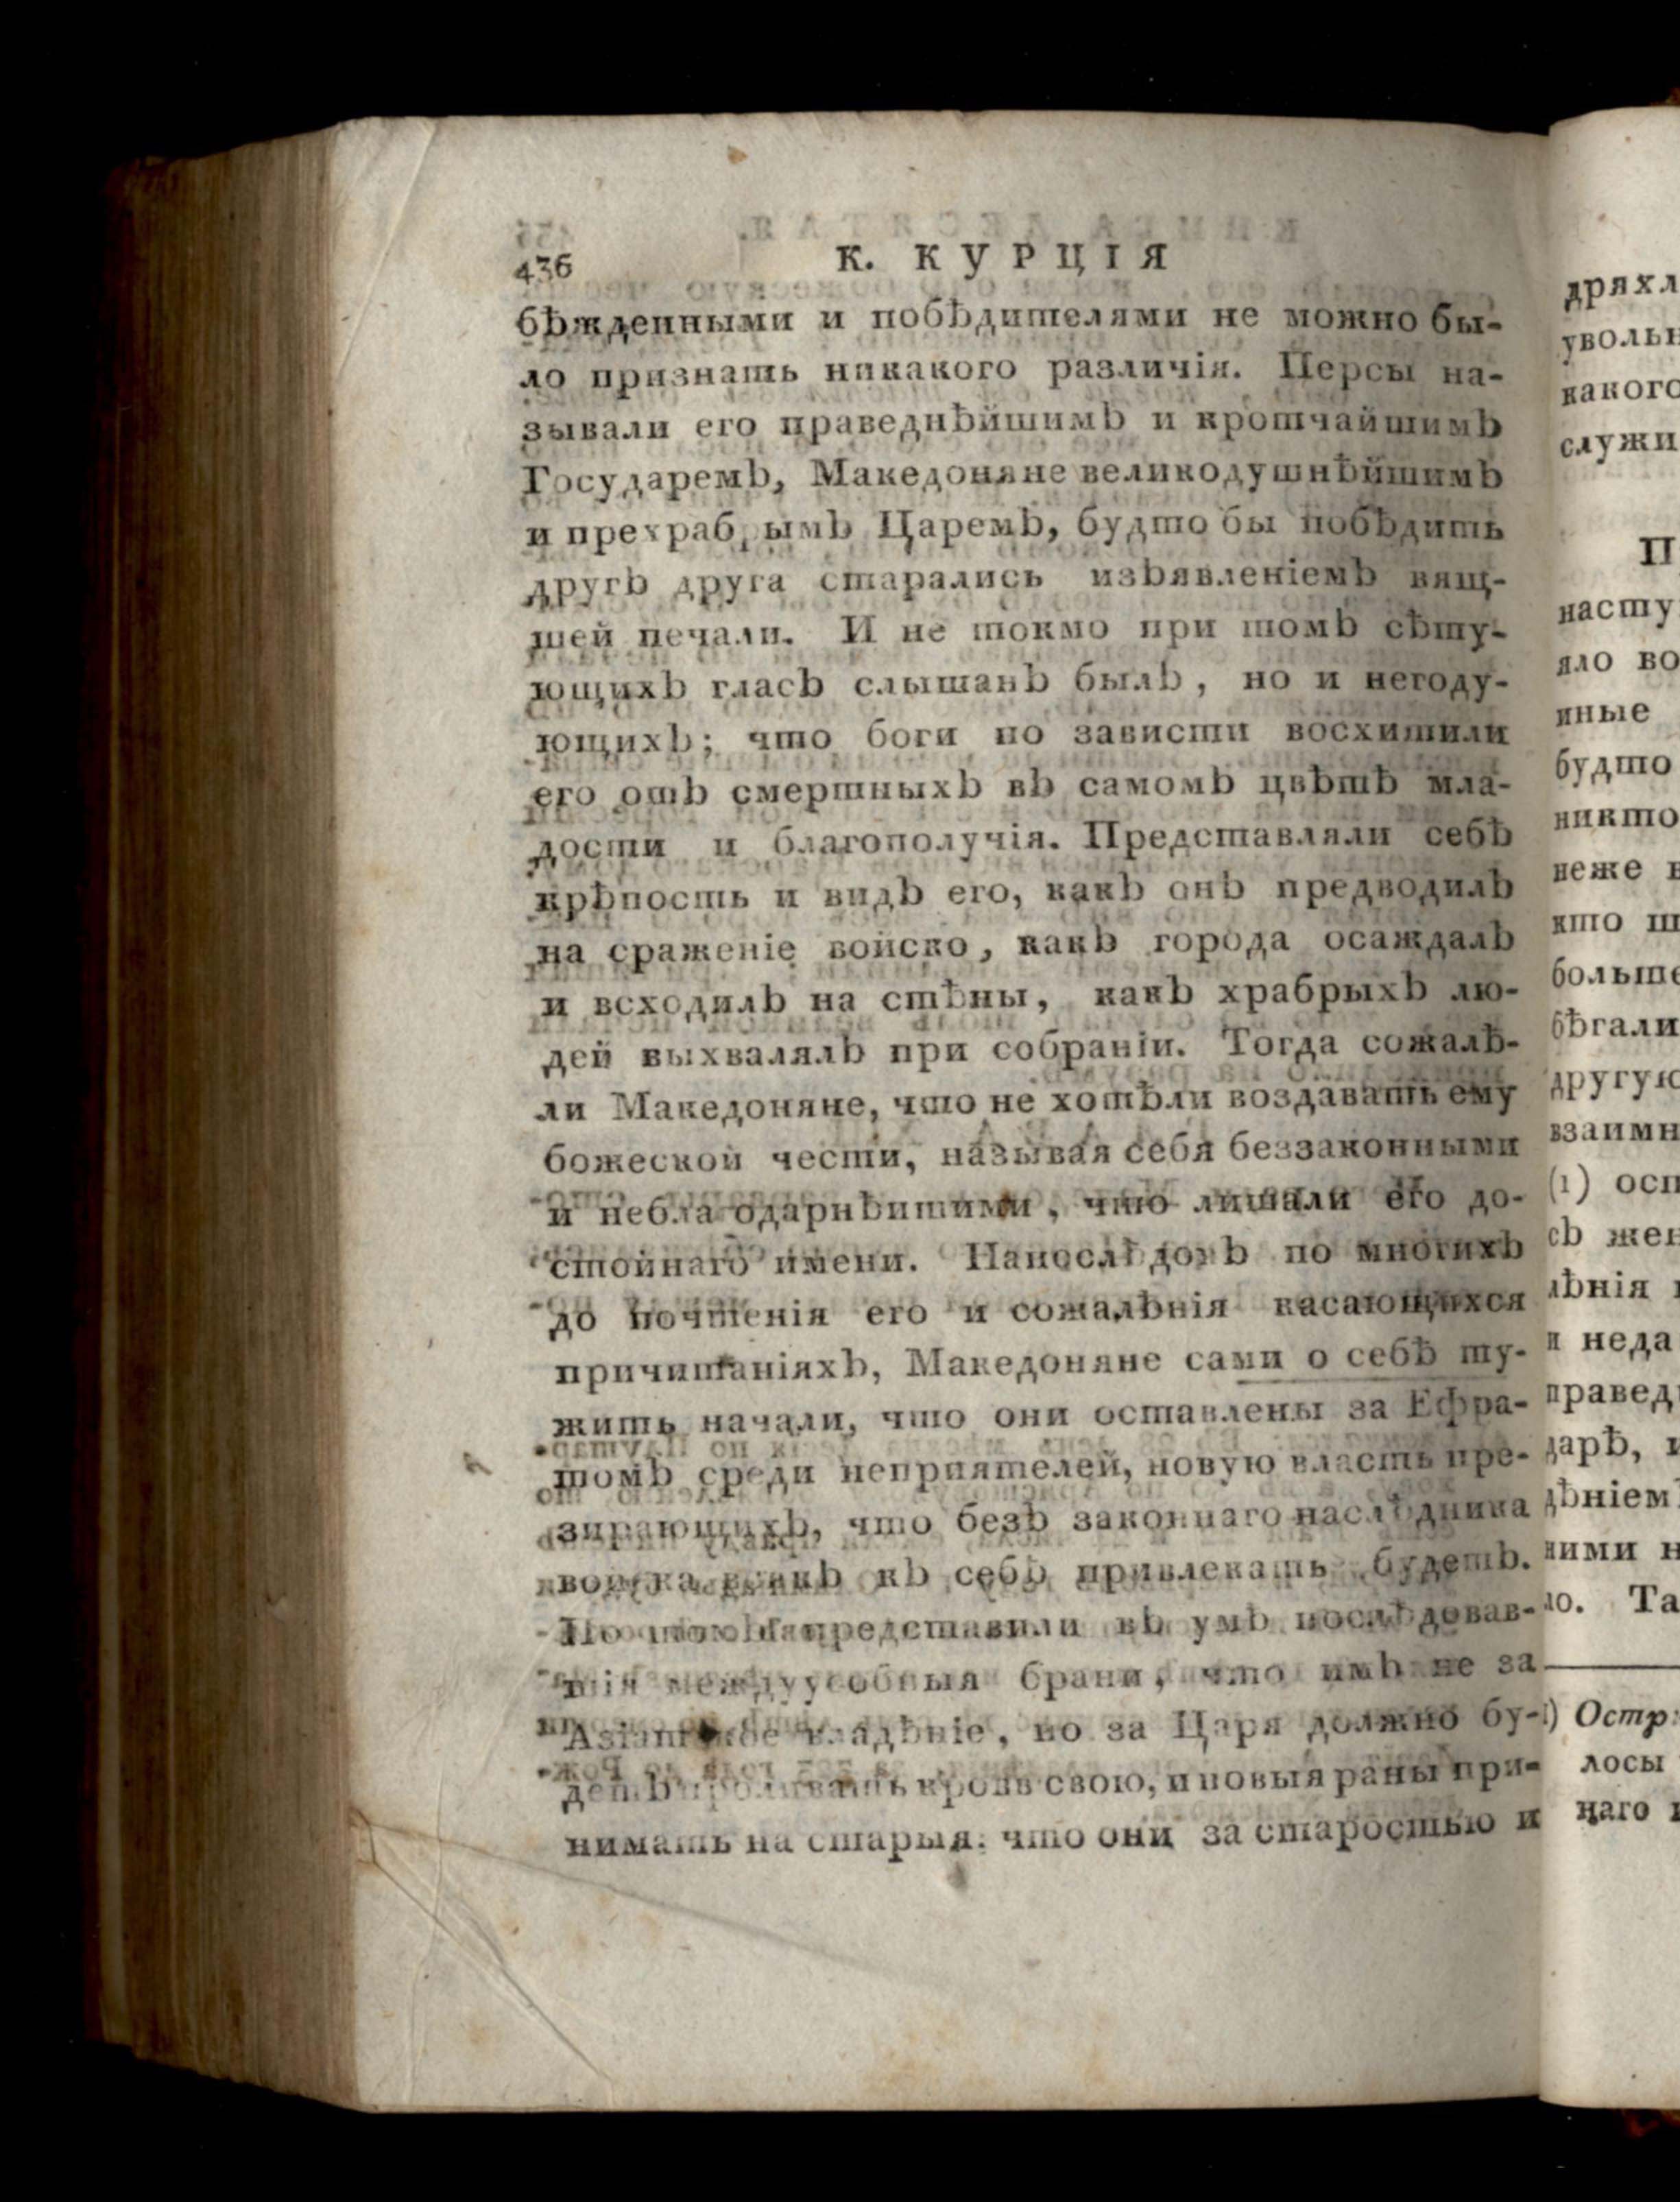 436
К. КУРЦІЯ
бѣжденными и побѣдителями не можно бы-
ло признать никакого различія. Персы на-
зывали его праведнѣйшимъ и кротчайшимъ
Государемъ, Македоняне великодушнѣйшимъ
и прехрабрымъ Царемъ, будто бы побѣдить
другъ друга старались изъявленіемъ вящ-
шей печали. И не токмо при томъ сѣту-
ющихъ гласъ слышанъ былъ, но и негоду-
ющихъ; что боги по зависти восхитили
его отъ смертныхъ въ самомъ цвѣтѣ мла-
дости и благополучія. Представляли себѣ
крѣпость и видъ его, какъ онъ предводилъ
на сраженіе войско, какъ города осаждалъ
и всходилъ на стѣны, какъ храбрыхъ лю-
дей выхвалялъ при собраніи. Тогда сожалѣ-
ли Македоняне, что не хотѣли воздавать ему
божеской чести, называя себя беззаконными
и неблагодарнѣйшими, что лишали его до-
стойнаго имени. Напослѣдокъ по многихъ
до почтенія его и сожалѣнія касающихся
причитаніяхъ, Македоняне сами о себѣ ту-
жить начали, что они оставлены за Ефра-
томъ среди непріятелей, новую власть пре-
зирающихъ, что безъ законнаго наслѣдника
войска всякъ къ себѣ привлекать будетъ.
представили въ умѣ послѣдовав-
шія междуусобныя брани, что имъ не за
Азіатское владѣніе, но за Царя должно бу-
детъ проливать кровь свою, и новыя раны при-
нимать на старыя: что они за старостью и
дряхл
уволь
какого
служи
П
насту
яло во
иные
будто
никто
неже
кто
больше
бѣгали
другую
взаимн
(1) ост
съ жен
лѣнія
и неда
правед
дарѣ,
дѣніем
ними н
ло. Та
) Остр
лосы
наго